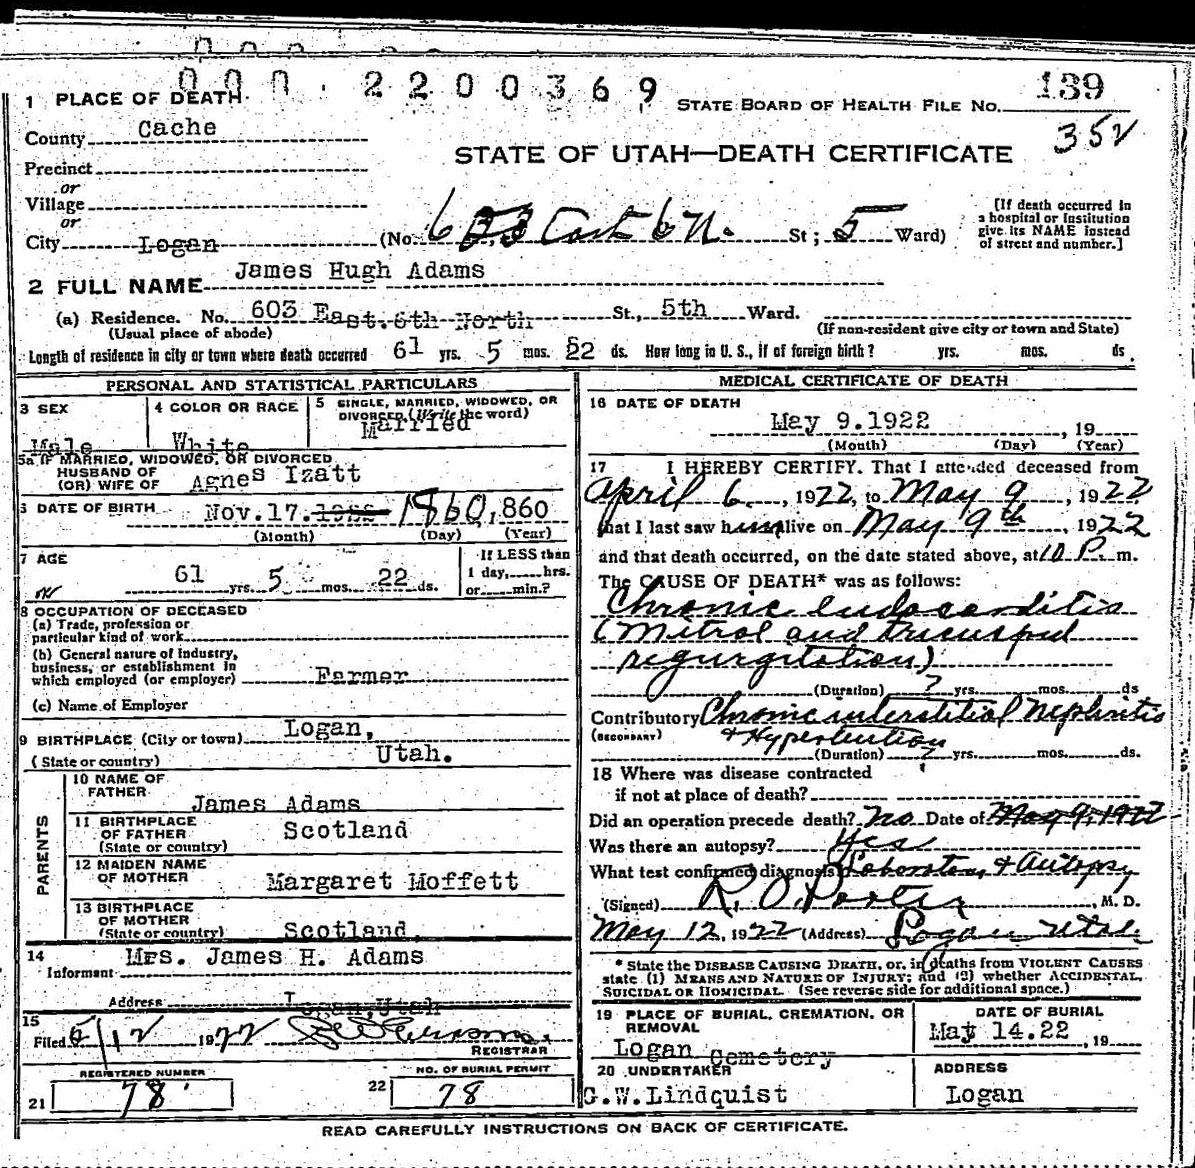 000.2200369
1 PLACE OF DEATH
STATE BOARD OF HEALTH FILE No. 139
352
County Cache
STATE OF UTAH—DEATH CERTIFICATE
Precinct
or
Village
or
City Logan (No. 633 East 6 N. St; 5 Ward)
[If death occurred in a hospital or institution give its NAME instead of street and number.]
2 FULL NAME James Hugh Adams
(a) Residence. No. 603 East.6th North St., 5th Ward.
(Usual place of abode) (If non-resident give city or town and State)
Length of residence in city or town where death occurred 61 yrs. 5 mos. 22 ds. How long in U. S., if of foreign birth? yrs. mos. ds.
PERSONAL AND STATISTICAL PARTICULARS
3 SEX Male
4 COLOR OR RACE White
5 SINGLE, MARRIED, WIDOWED, OR DIVORCED (Write the word) Married
5a IF MARRIED, WIDOWED, OR DIVORCED
HUSBAND OF
(OR) WIFE OF Agnes Izatt
6 DATE OF BIRTH Nov.17. 1860, 860
(Month) (Day) (Year)
7 AGE 61 yrs. 5 mos. 22 ds.
If LESS than 1 day, hrs. or min.?
8 OCCUPATION OF DECEASED
(a) Trade, profession or particular kind of work
(b) General nature of industry, business, or establishment in which employed (or employer) Farmer
(c) Name of Employer
9 BIRTHPLACE (City or town) Logan,
(State or country) Utah.
PARENTS
10 NAME OF FATHER James Adams
11 BIRTHPLACE OF FATHER (State or country) Scotland
12 MAIDEN NAME OF MOTHER Margaret Moffett
13 BIRTHPLACE OF MOTHER (State or country) Scotland
14 Informant Mrs. James H. Adams
Address Logan, Utah
15 Filed 5/12 1922
REGISTRAR
REGISTERED NUMBER
21 78
NO. OF BURIAL PERMIT
22 78
MEDICAL CERTIFICATE OF DEATH
16 DATE OF DEATH
May 9.1922, 19
(Month) (Day) (Year)
17 I HEREBY CERTIFY. That I attended deceased from
April 6, 1922, to May 9, 1922
that I last saw him alive on May 9th 1922
and that death occurred, on the date stated above, at 10 P. m.
The CAUSE OF DEATH* was as follows:
Chronic endocarditis
(Mitral and tricuspid
regurgitation)
(Duration) ? yrs. mos. ds
Contributory Chronic interstitial Nephritis
(SECONDARY) & Hypertention
(Duration) ? yrs. mos. ds.
18 Where was disease contracted
if not at place of death?
Did an operation precede death? no Date of May 9, 1922
Was there an autopsy? Yes
What test confirmed diagnosis? Laboratory & Autopsy
(Signed) R. O. Porter, M. D.
May 12, 1922 (Address) Logan Utah
* State the DISEASE CAUSING DEATH, or, in deaths from VIOLENT CAUSES
state (1) MEANS AND NATURE OF INJURY; and (2) whether ACCIDENTAL,
SUICIDAL OR HOMICIDAL. (See reverse side for additional space.)
19 PLACE OF BURIAL, CREMATION, OR REMOVAL
Logan Cemetery
DATE OF BURIAL
May 14.22, 19
20 UNDERTAKER
G.W.Lindquist
ADDRESS
Logan
READ CAREFULLY INSTRUCTIONS ON BACK OF CERTIFICATE.